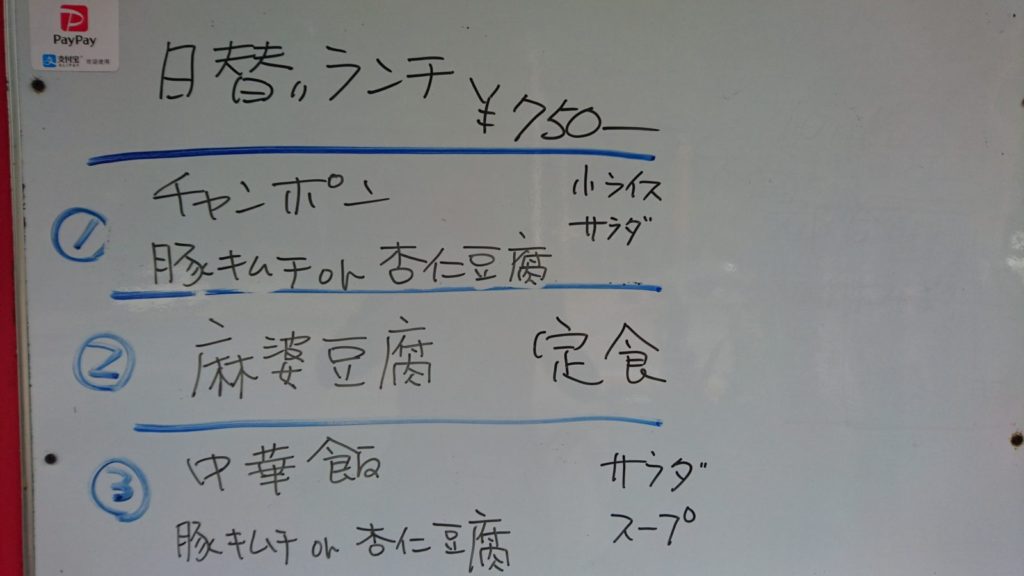 PayPay
支付宝
日替りランチ ¥750ー
① チャンポン 小ライス
サラダ
豚キムチ or 杏仁豆腐
② 麻婆豆腐 定食
③ 中華飯 サラダ
スープ
豚キムチ or 杏仁豆腐